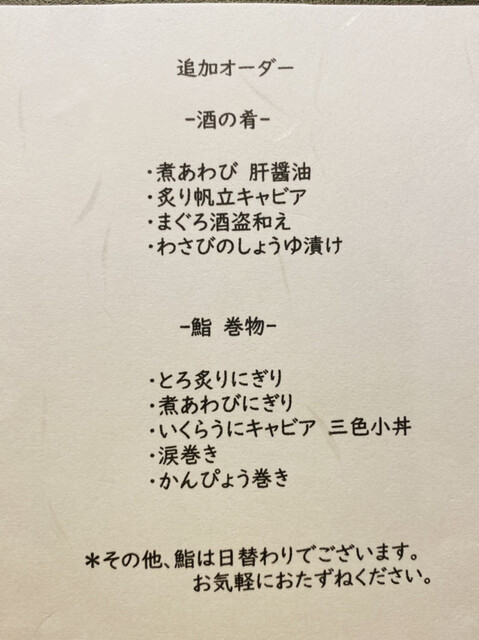 追加オーダー
-酒の肴-
・煮あわび 肝醤油
・炙り帆立キャビア
・まぐろ酒盗和え
・わさびのしょうゆ漬け
-鮨 巻物-
・とろ炙りにぎり
・煮あわびにぎり
・いくらうにキャビア 三色小丼
・涙巻き
・かんぴょう巻き
＊その他、鮨は日替わりでございます。
お気軽におたずねください。